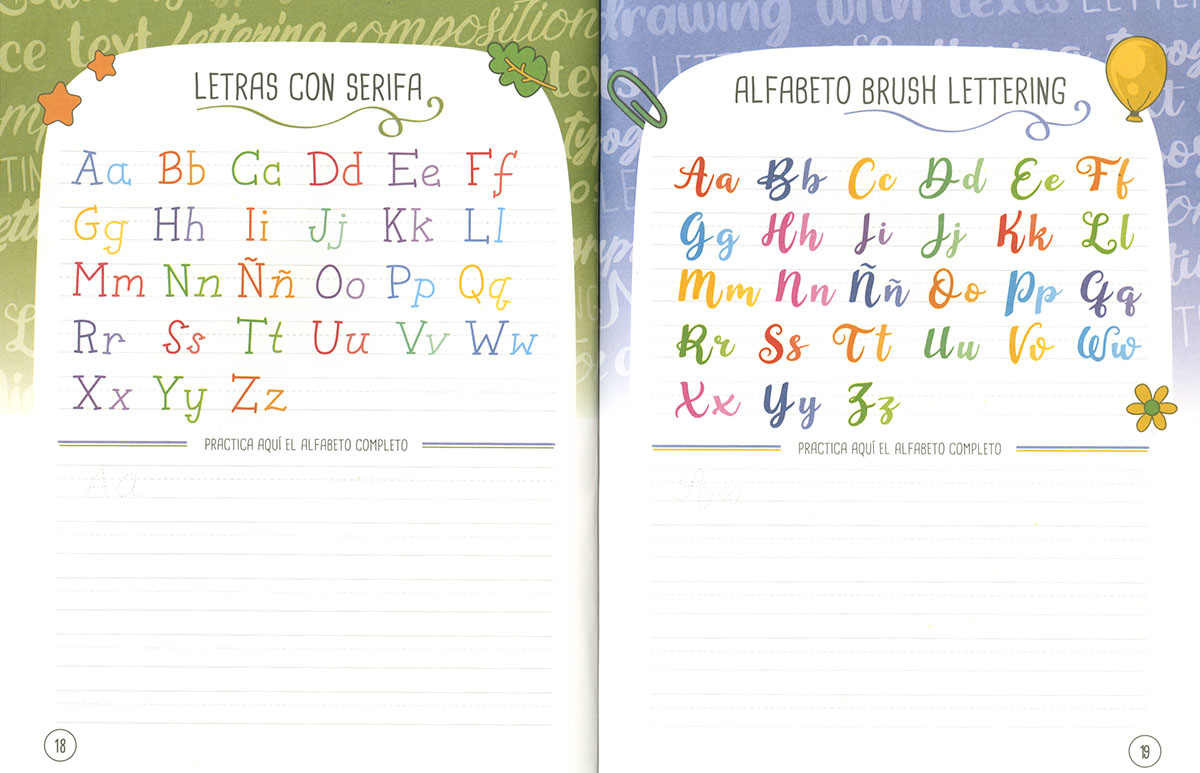 ce text Lettering composition
LETRAS CON SERIFA
Aa Bb Cc Dd Ee Ff
Gg Hh Ii Jj Kk Ll
Mm Nn Ññ Oo Pp Qq
Rr Ss Tt Uu Vv Ww
Xx Yy Zz
PRACTICA AQUÍ EL ALFABETO COMPLETO
Aa
18
drawing with texts
ALFABETO BRUSH LETTERING
Aa Bb Cc Dd Ee Ff
Gg Hh Ii Jj Kk Ll
Mm Nn Ññ Oo Pp Qq
Rr Ss Tt Uu Vv Ww
Xx Yy Zz
PRACTICA AQUÍ EL ALFABETO COMPLETO
Aa
19